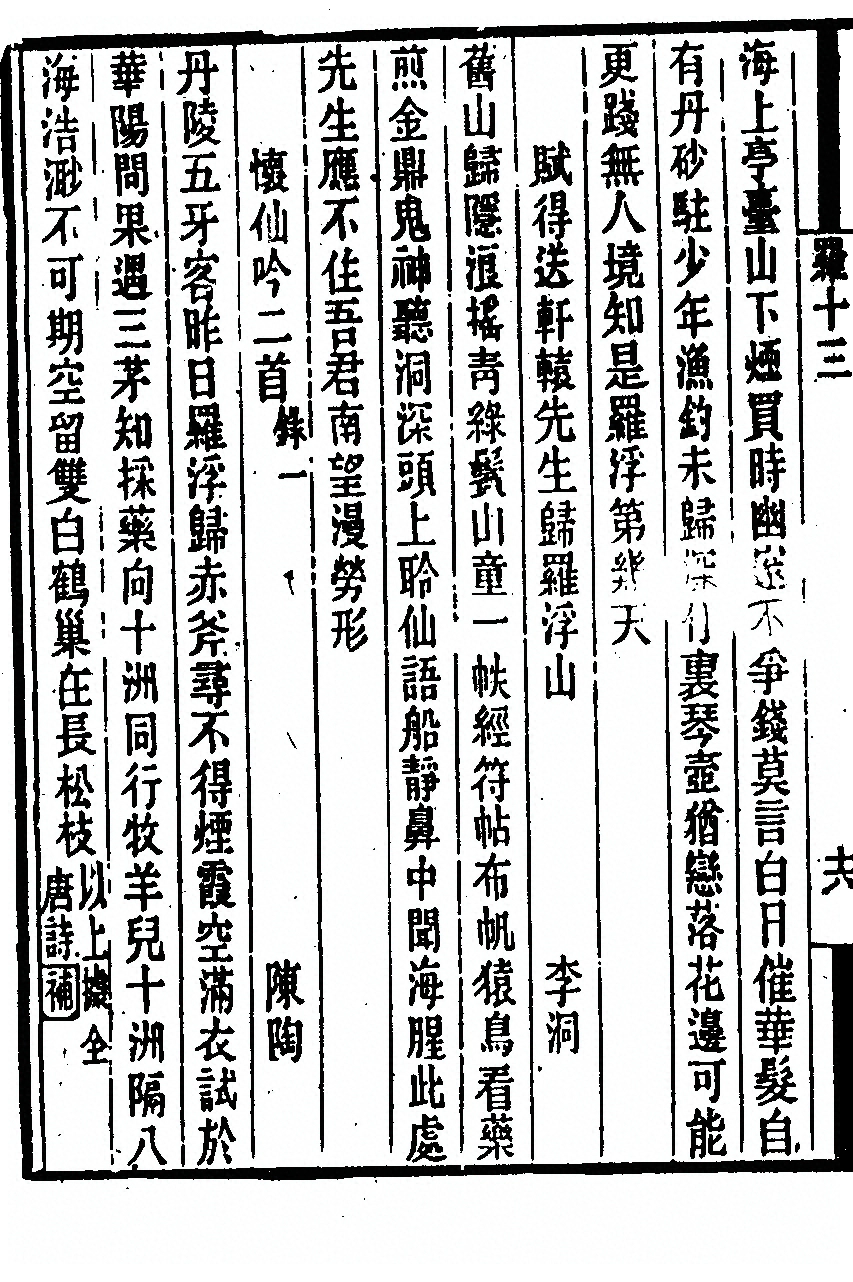 羅十三
海上亭臺山下煙買時幽邃不爭錢莫言白日催華髮自
有丹砂駐少年漁釣未歸深竹裏琴壺猶戀落花邊可能
更踐無人境知是羅浮第幾天
賦得送軒轅先生歸羅浮山 李洞
舊山歸隱浪搖青綠鬢山童一帙經符帖布帆猿鳥看藥
煎金鼎鬼神聽洞深頭上聆仙語船靜鼻中聞海腥此處
先生應不住吾君南望漫勞形
懷仙吟二首 錄一 陳陶
丹陵五牙客昨日羅浮歸赤斧尋不得煙霞空滿衣試於
華陽問果遇三茅知採藥向十洲同行牧羊兒十洲隔八
海浩渺不可期空留雙白鶴巢在長松枝 以上據全唐詩補